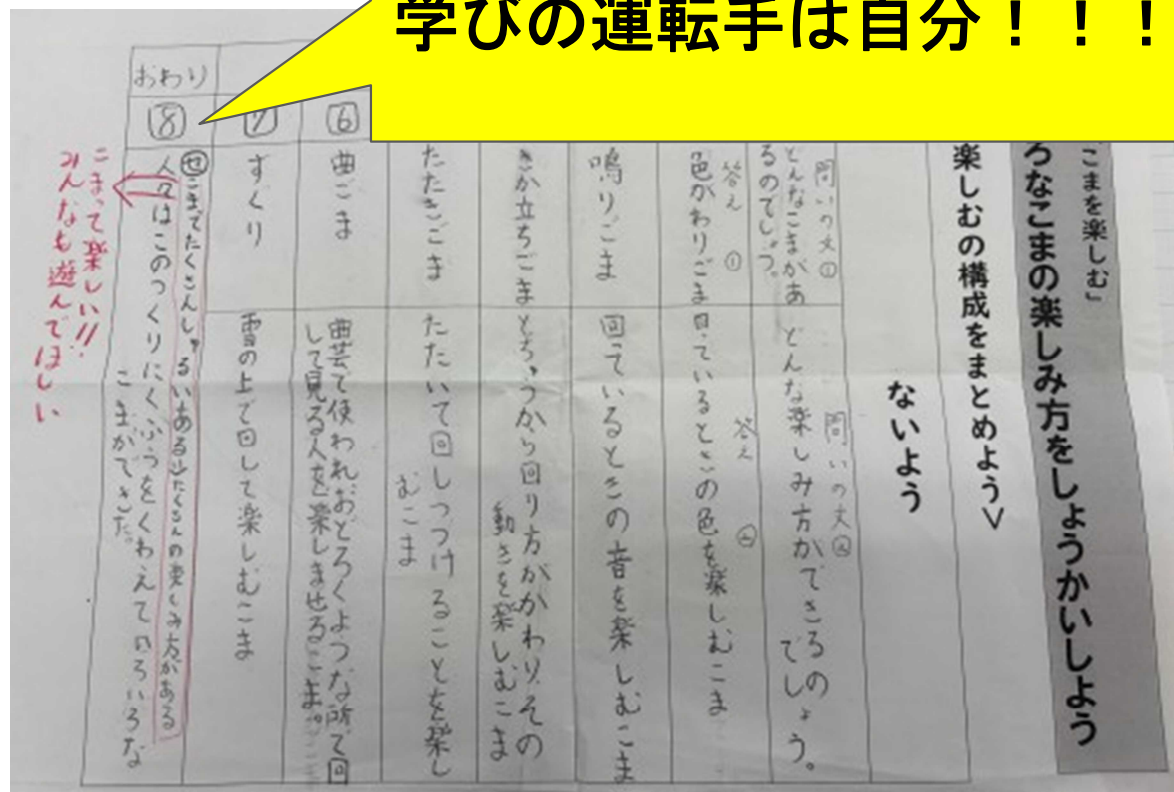 学びの運転手は自分！！！
こまを楽しむ」
ろなこまの楽しみ方をしょうかいしよう
楽しむの構成をまとめよう＞
ないよう
問いの文①
どんなこまがあ
るのでしょう。
問いの文②
どんな楽しみ方ができるの
でしょう。
答え ①
色がわりごま
答え ②
回っているときの色を楽しむこま
鳴りごま
回っているときの音を楽しむこま
さか立ちごま
とちゅうから回り方がかわり、その
動きを楽しむこま
たたきごま
たたいて回しつづけることを楽し
むこま
6
曲ごま
曲芸で使われおどろくような所で回
して見る人を楽しませるこま。
7
ずぐり
雪の上で回して楽しむこま
おわり
8
人々はこのつくりにくふうをくわえていろいろな
こまができた。
こまって楽しい!!
みんなも遊んでほしい